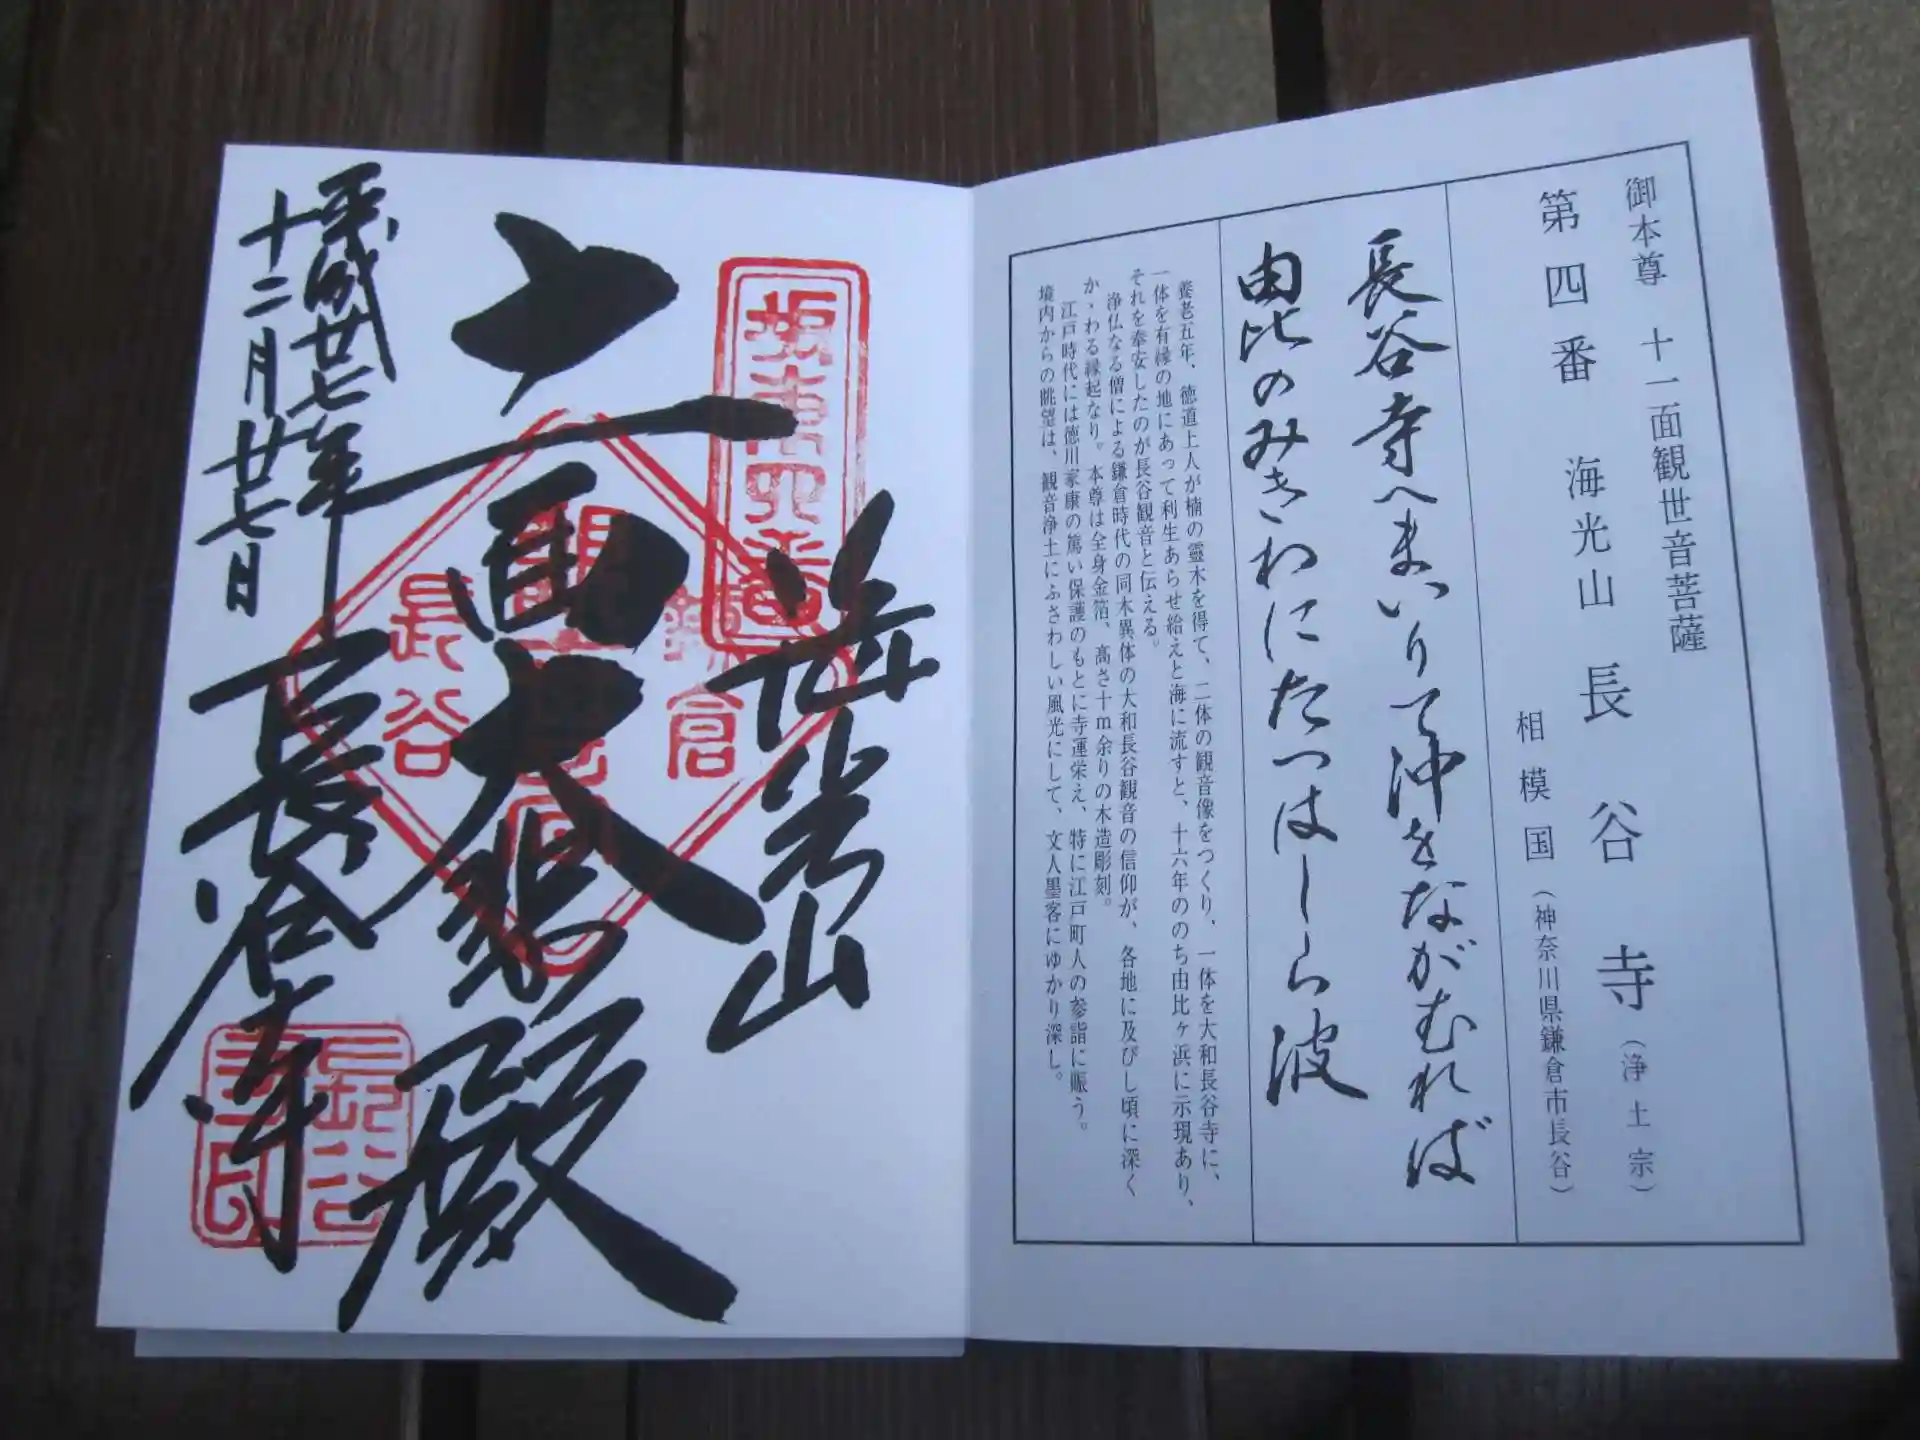 御本尊 十一面観世音菩薩
第四番 海光山 長谷寺(浄土宗)
相模国(神奈川県鎌倉市長谷)
長谷寺へまいりて沖をながむれば
由比のみぎわにたつはしら波
養老五年、徳道上人が楠の霊木を得て、二体の観音像をつくり、一体を大和長谷寺に、
一体を有縁の地にあって利生あらせ給えと海に流すと、十六年ののち由比ヶ浜に示現あり、
それを奉安したのが長谷観音と伝える。
浄仏なる僧による鎌倉時代の同木異体の大和長谷観音の信仰が、各地に及びし頃に深く
かゝわる縁起なり。本尊は全身金箔、高さ十m余りの木造彫刻。
江戸時代には徳川家康の篤い保護のもとに寺運栄え、特に江戸町人の参詣に賑う。
境内からの眺望は、観音浄土にふさわしい風光にして、文人墨客にゆかり深し。
坂東四番
海光山
十一面大悲殿
鎌倉
長谷
長谷寺
平成廿七年
十二月廿七日